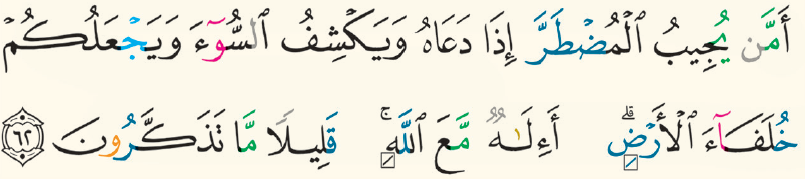 أَمَّن يُجِيبُ ٱلْمُضْطَرَّ إِذَا دَعَاهُ وَيَكْشِفُ ٱلسُّوٓءَ وَيَجْعَلُكُمْ
خُلَفَآءَ ٱلْأَرْضِ ۗ أَءِلَـٰهٌ مَّعَ ٱللَّهِ ۚ قَلِيلًا مَّا تَذَكَّرُونَ ﴿٦٢﴾